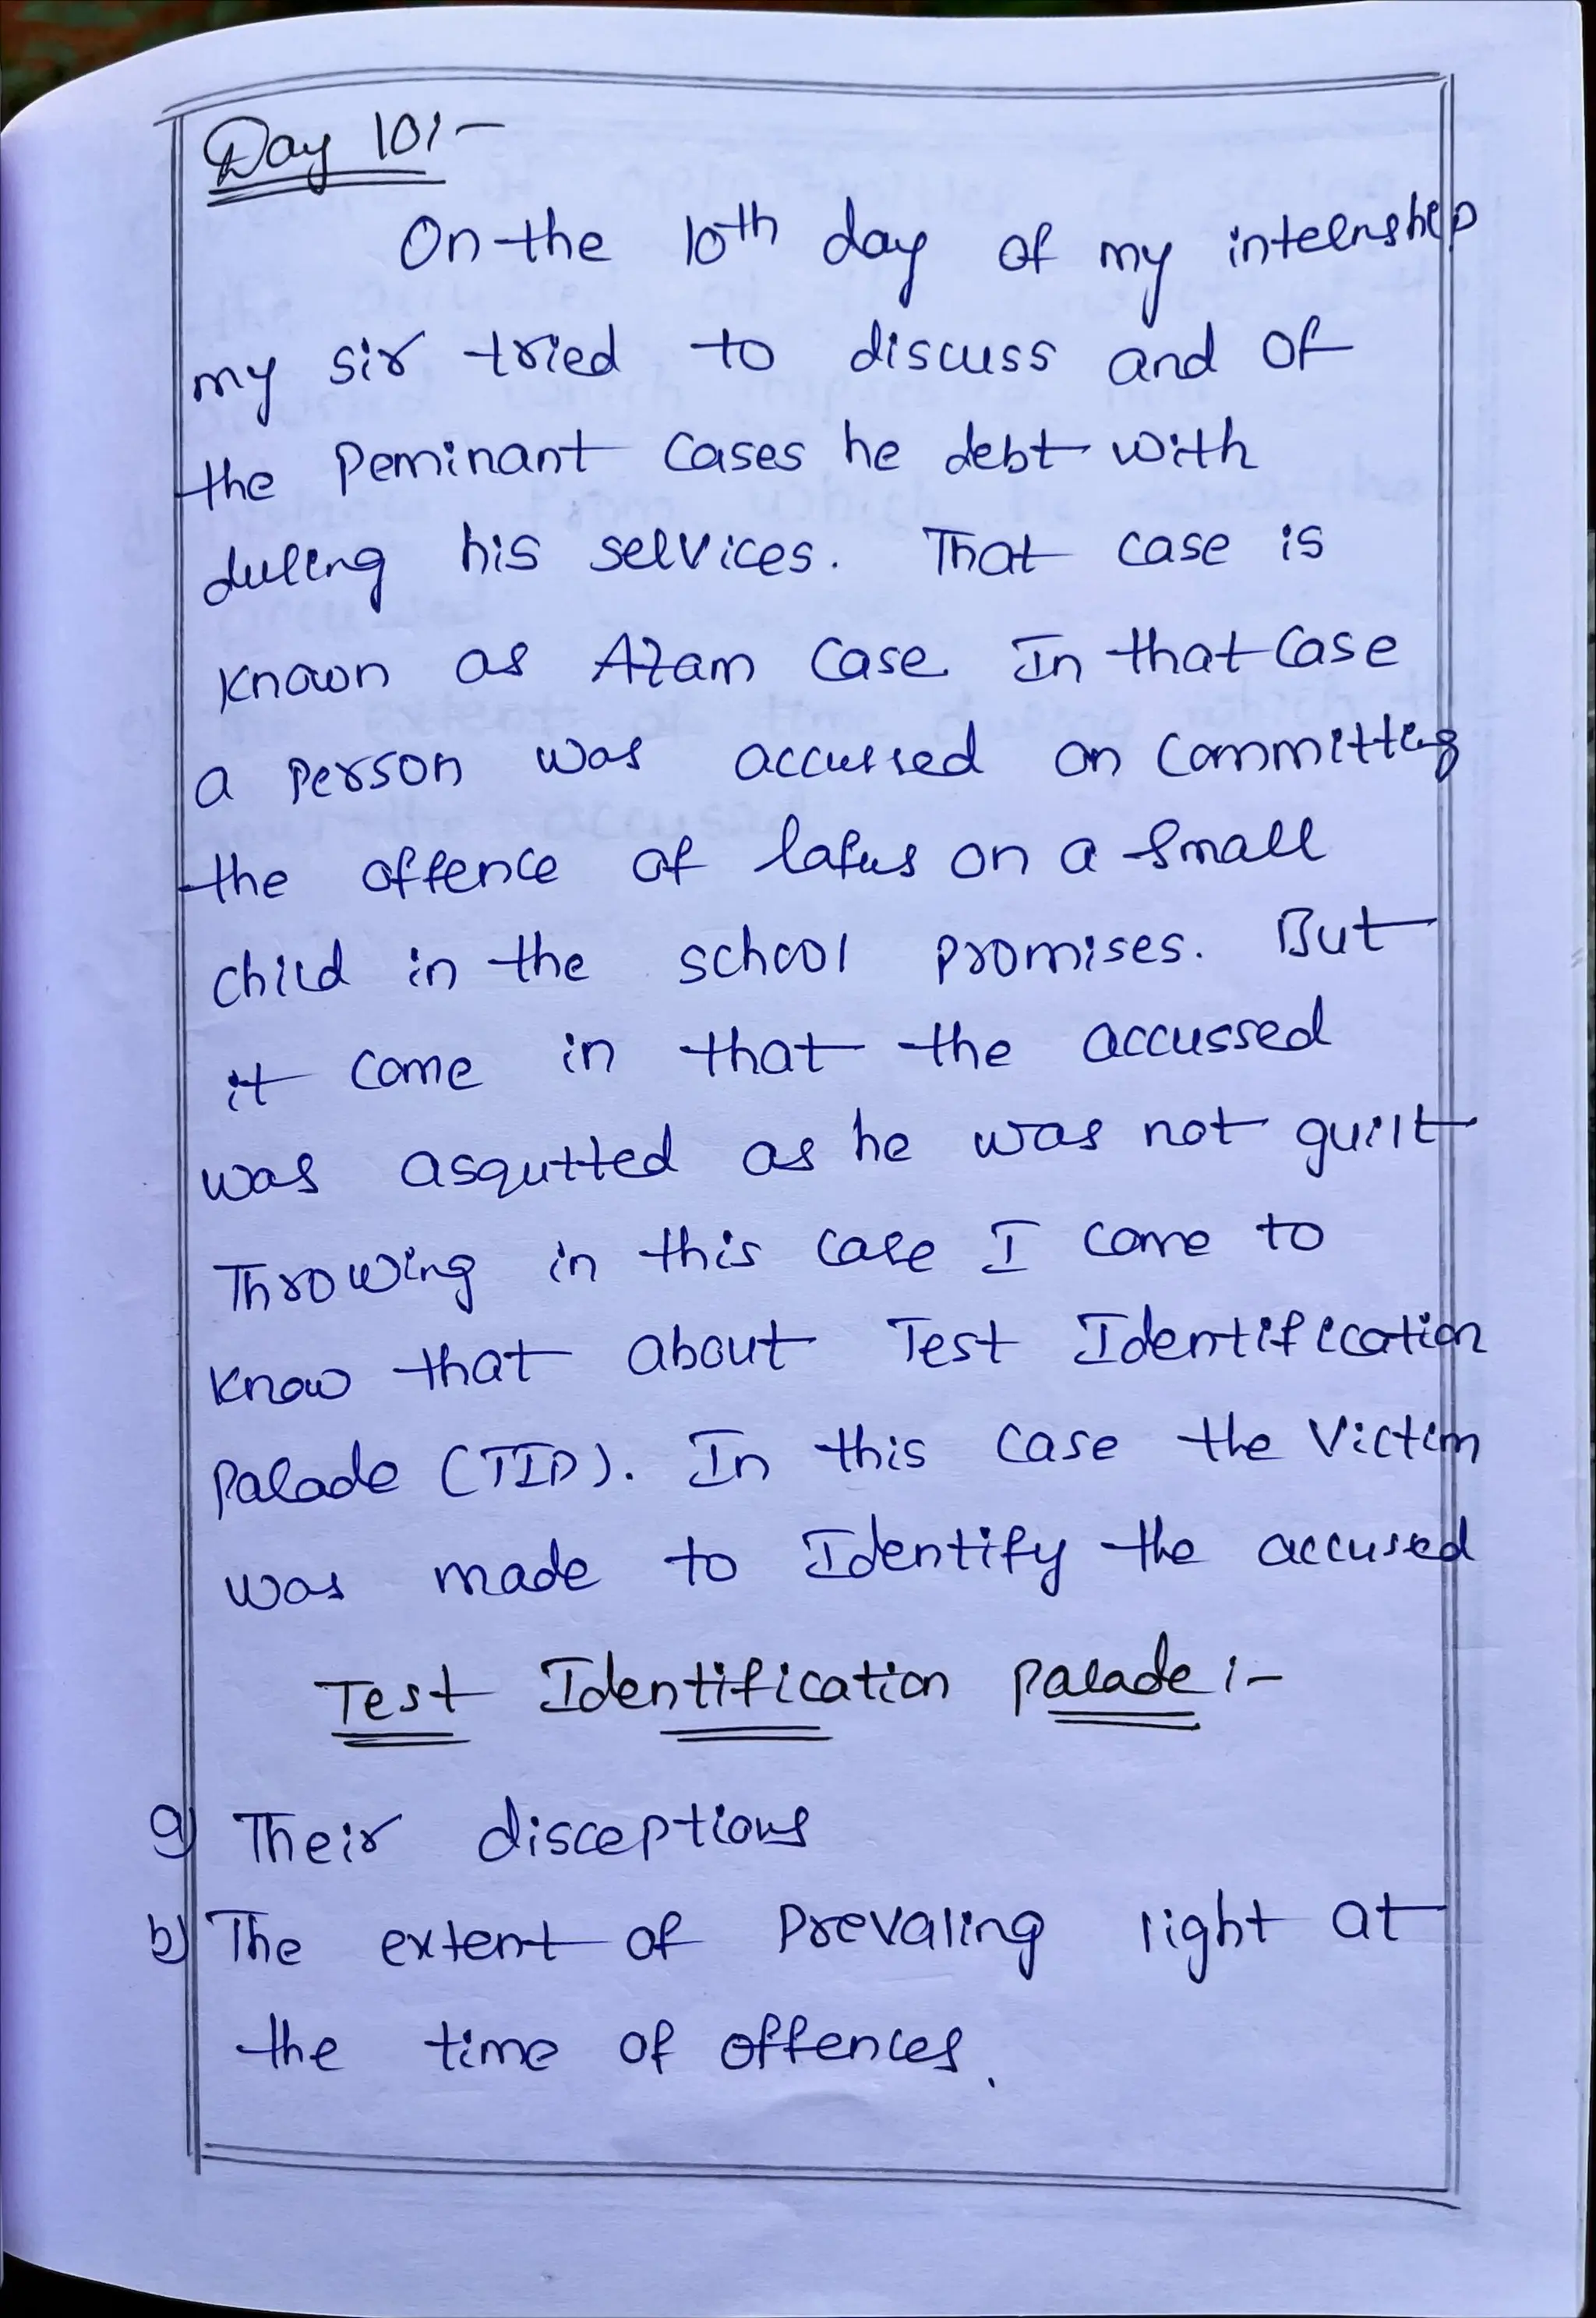 Day 10:-
On the 10th day of my internship
my sir tried to discuss and of
the Peminant Cases he debt with
during his services. That case is
known as Azam Case. In that Case
a person was accussed on Committing
the offence of lafus on a small
child in the school promises. But
it come in that the accussed
was asqutted as he was not guilt
Throwing in this case I come to
know that about Test Identification
Parade (TIP). In this case the Victim
was made to Identify the accused
Test Identification Parade :-
a) Their disceptions
b) The extent of Prevaling light at
the time of offences.